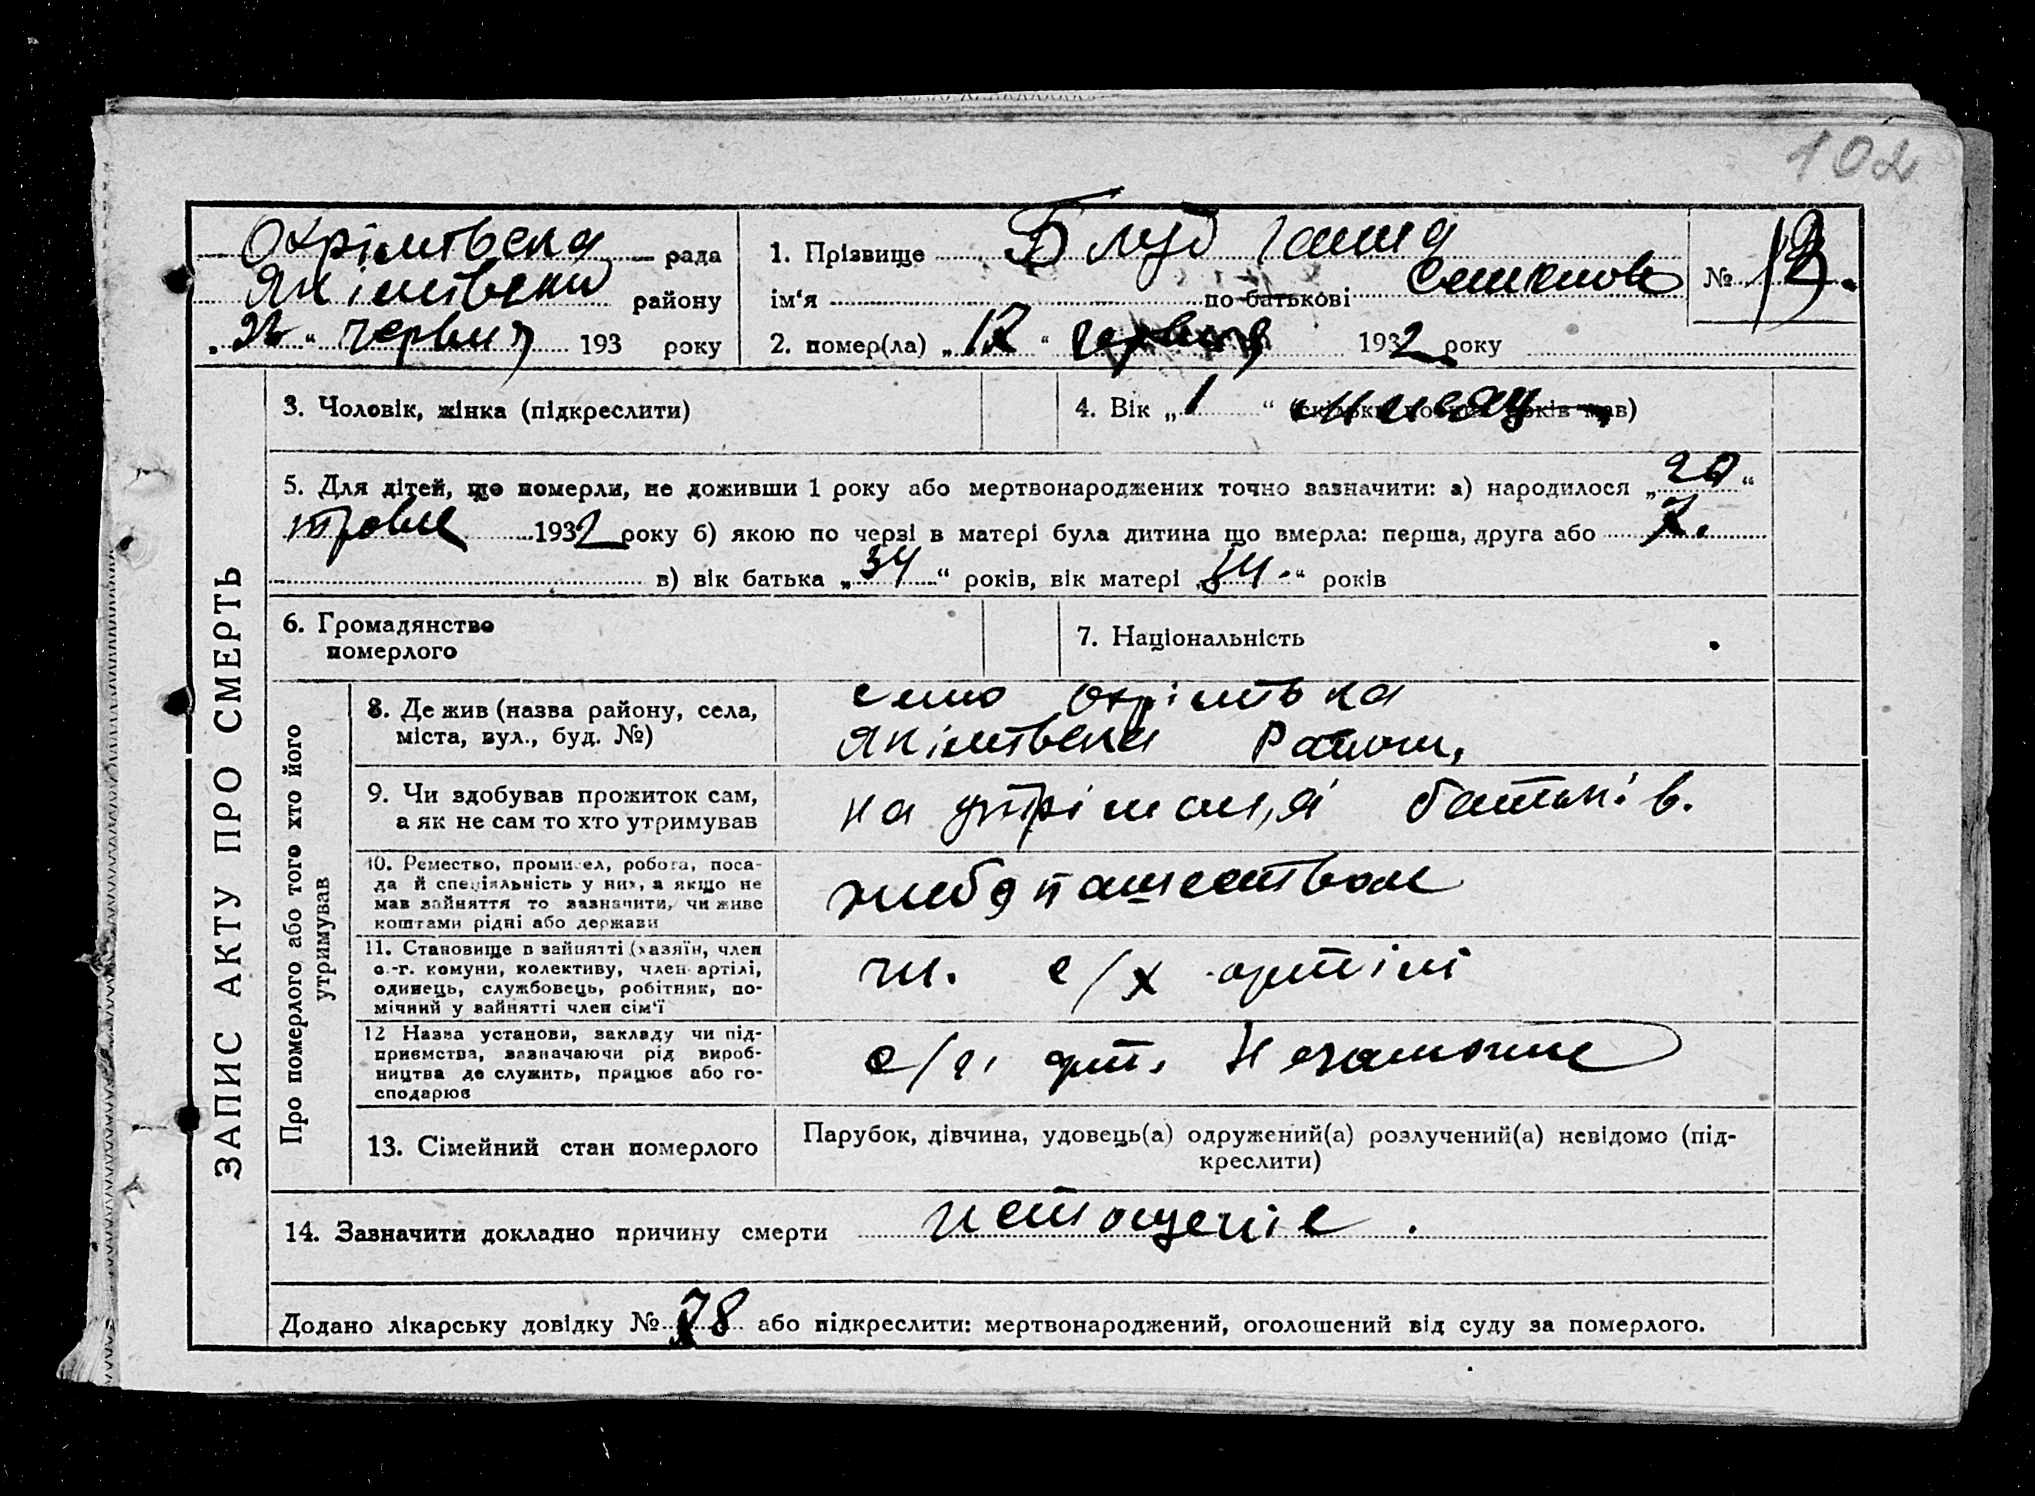 102
Охрімтвська рада
Якімтвськи району
„ 22 “ червня 193 року
1. Прізвище Блуд Ганна
ім‘я по батькові
№
2. помер(ла) „ 12 “ червня 1932 року
ЗАПИС АКТУ ПРО СМЕРТЬ
3. Чоловік, жінка (підкреслити)
4. Вік „ 1 “ місяць
5. Для дітей, що померли, не доживши 1 року або мертвонароджених точно зазначити: а) народилося „ 20 “
травня 1932 року б) якою по черзі в матері була дитина що вмерла: перша, друга або 7.
в) вік батька „ 34 “ років, вік матері „ 34. “ років
6. Громадянство
померлого
7. Національність
Про померлого або того хто його
утримував
8. Де жив (назва району, села,
міста, вул., буд. №)
село Охрімтвка
Якімтвська Району,
9. Чи здобував прожиток сам,
а як не сам то хто утримував
на утріманія батьків.
10. Ремество, промисел, робота, поса-
да й спеціяльність у них, а якщо не
мав зайняття то зазначити, чи живе
коштами рідні або держави
хлебопашеством
11. Становище в зайнятті (хазяїн, член
с.-г. комуни, колективу, член артілі,
одинець, службовець, робітник, по-
мічний у зайнятті член сім‘ї
чл. с/х артілі
12 Назва установи, закладу чи під-
приємства, зазначаючи рід вироб-
ництва де служить, працює або го-
сподарює
с/г. арт. Незаможне
13. Сімейний стан померлого
Парубок, дівчина, удовець(а) одружений(а) розлучений(а) невідомо (під-
креслити)
14. Зазначити докладно причину смерти истощеніе.
Додано лікарську довідку № 78 або підкреслити: мертвонароджений, оголошений від суду за померлого.